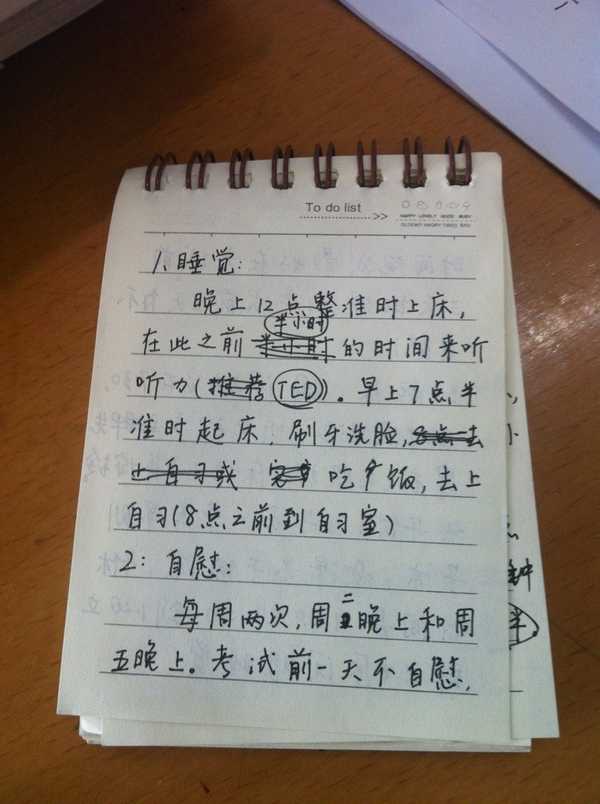 To do list >>
HAPPY LOVELY GOOD BUSY
1、睡觉:
晚上12点整准时上床,
半小时
在此之前半小时的时间来听
听力(推荐TED)。早上7点半
准时起床,刷牙洗脸,8点去
上自习或 吃个饭,去上
自习(8点之前到自习室)
2:自慰:
每周两次,周二晚上和周
五晚上。考试前一天不自慰,